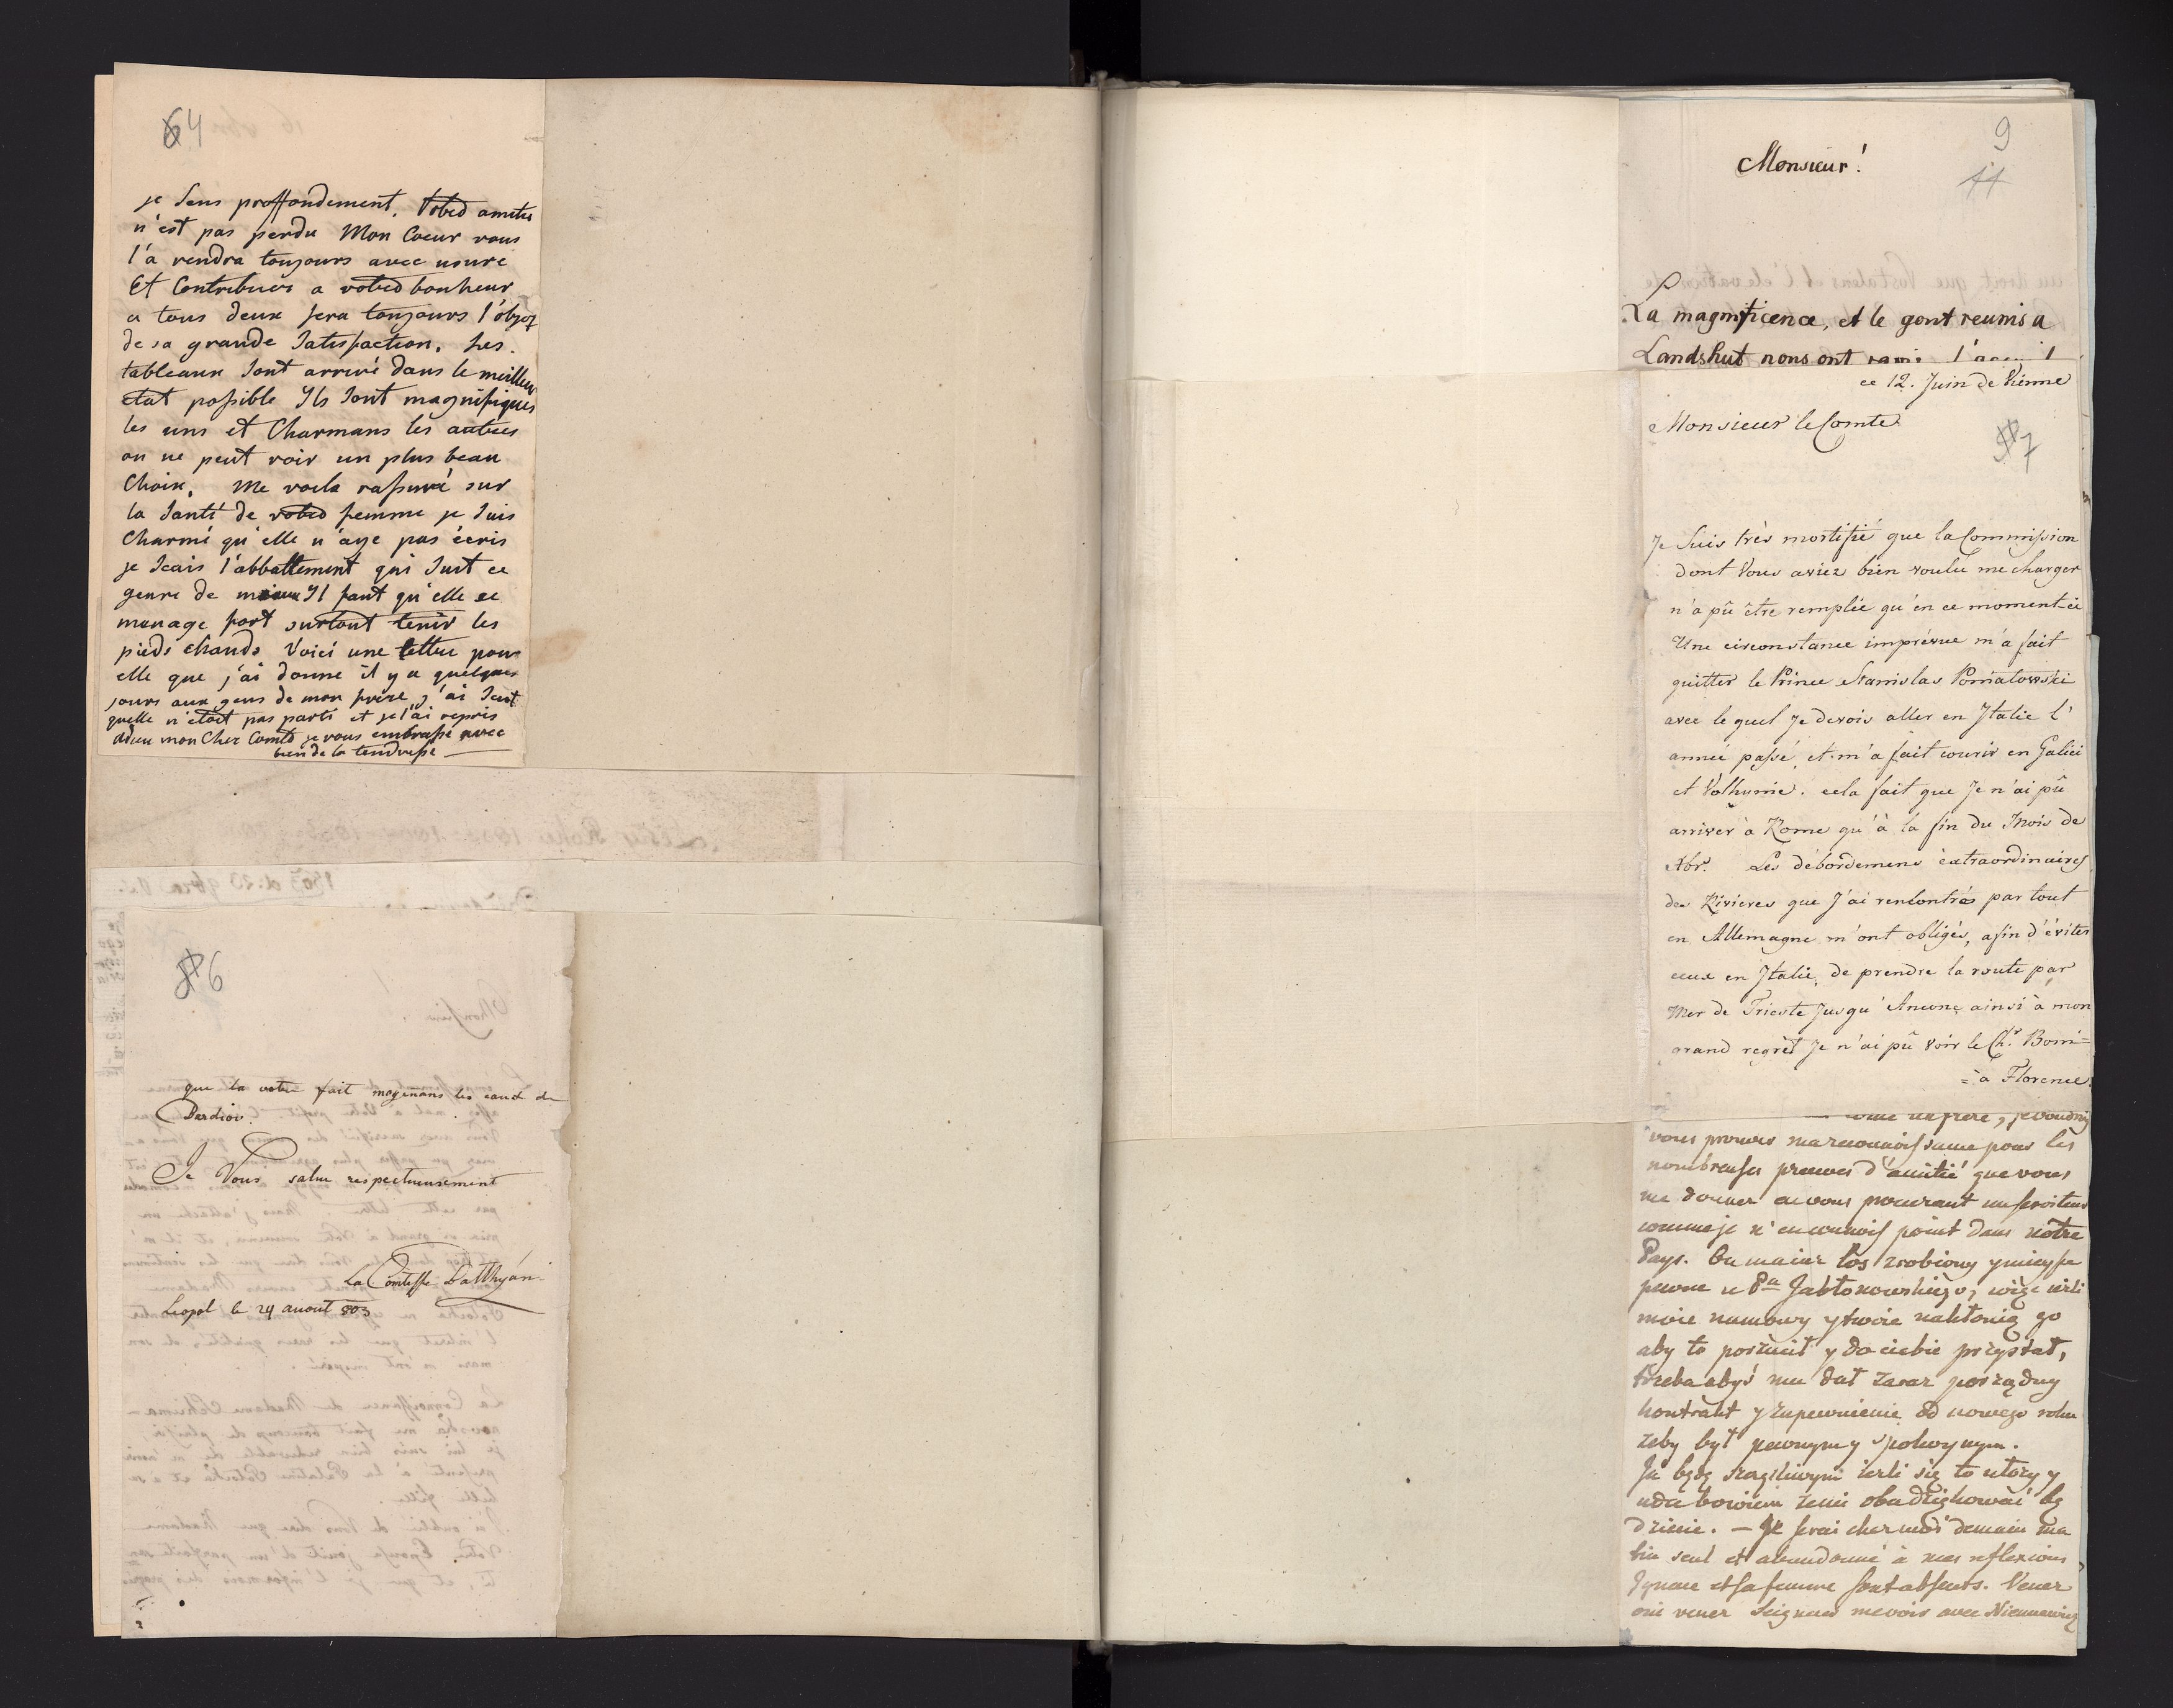 64
je sens proffondement. Votre amitié
n'est pas perdu Mon Coeur vous
l'a rendra toujours avec usure
Et Contribuer a votre bonheur
a tous deux sera toujours l'objet
de sa grande Satisfaction. Les
tableaux sont arrivé dans le meilleur
état possible Ils sont magnifiques
les uns et Charmans les autres
on ne peut voir un plus beau
Choix. Me voila rassuré sur
la Santé de votre femme je suis
Charmé qu'elle n'aye pas écris
je scais l'abbattement qui suit ce
genre de Il faut qu'elle se
menage fort surtout tenir les
pieds chauds Voici une lettre pour
elle que j'ai donné il y a quelques
jours aux gens de mon frère, j'ai
quelle n'étoit pas parti et je l'ai repris
adieu mon Cher Comte je vous embrasse avec
bien de la tendresse
6
que la votre fait moyenans les eaux de
Bardiow.
Je Vous salue respectueusement
La Comtesse Batthyán
Leopol le 24 auout 803
9
11
Monsieur!
La magnificence, et le gout reunis a
Landshut nous ont
ce 12. Juin de Vienne
Monsieur le Comte
7
Je suis très mortifié que la Commission
dont Vous aviez bien voulu me charger
n'a pû être remplie qu'en ce moment-ci
Une circonstance imprévue m'a fait
quitter le Prince Stanislas Poniatowski
avec le quel je devois aller en Italie l'
année passé, et m'a fait courir en Galici
et Volhynie. cela fait que Je n'ai pû
arriver à Rome qu'à la fin du Mois de
Xbr. Les débordemens extraordinaires
des Rivieres que J'ai rencontrés par tout
en Allemagne m'ont obligés, afin d'éviter
ceux en Italie, de prendre la route par
Mer de Trieste jusqu'Ancone ainsi à mon
grand regrèt Je n'ai pû voir le Ch.r Boni=
=à Florence
frere, je voudrois
vous prouver ma reconnoissance pour les
nombreuses preuves d'amitié que vous
me donner en vous procurant un serviteur
comme je n'en connois point dans notre
Pays. On maiąc los zrobiony y mieysce
pewne u Pna Jabłonowskiego, więc ieśli
moie namowy y twoie nakłonią go
aby to porzucił y do ciebie przystał,
trzeba abyś mu dał zaraz porządny
kontrakt y zapewnienie od nowego roku
żeby był pewnym y spokoynym.
Ja będę szczęśliwym ieśli się to ułoży y
uda bowiem
dzicie. — Je serai chez moi demain
seul et abandonné à mes reflexions
Ignace et sa femme sont absents. Venez
oui venez Seigneur me voir avec